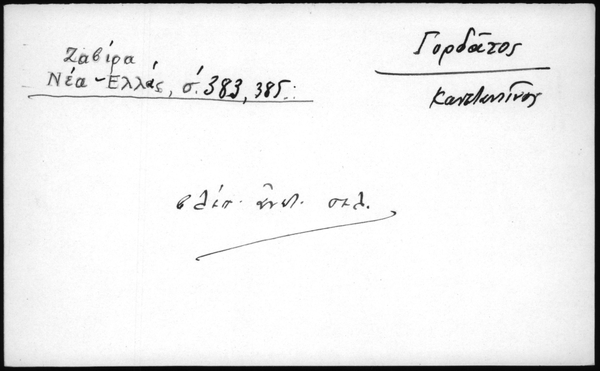 Ζαβίρα
Νέα-Ελλάς, σ. 383, 385.:
Γορδᾶτος
Κωνσταντῖνος
βλέπ. ἀνωτ. σελ.